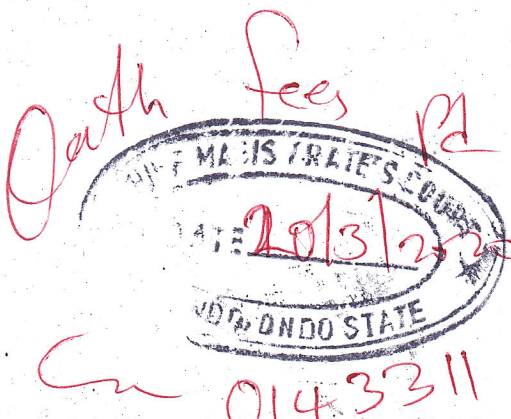 Oath Fees Pd
MAGISTRATE'S COURT
DATE 20/3/2020
ONDO STATE
0143311